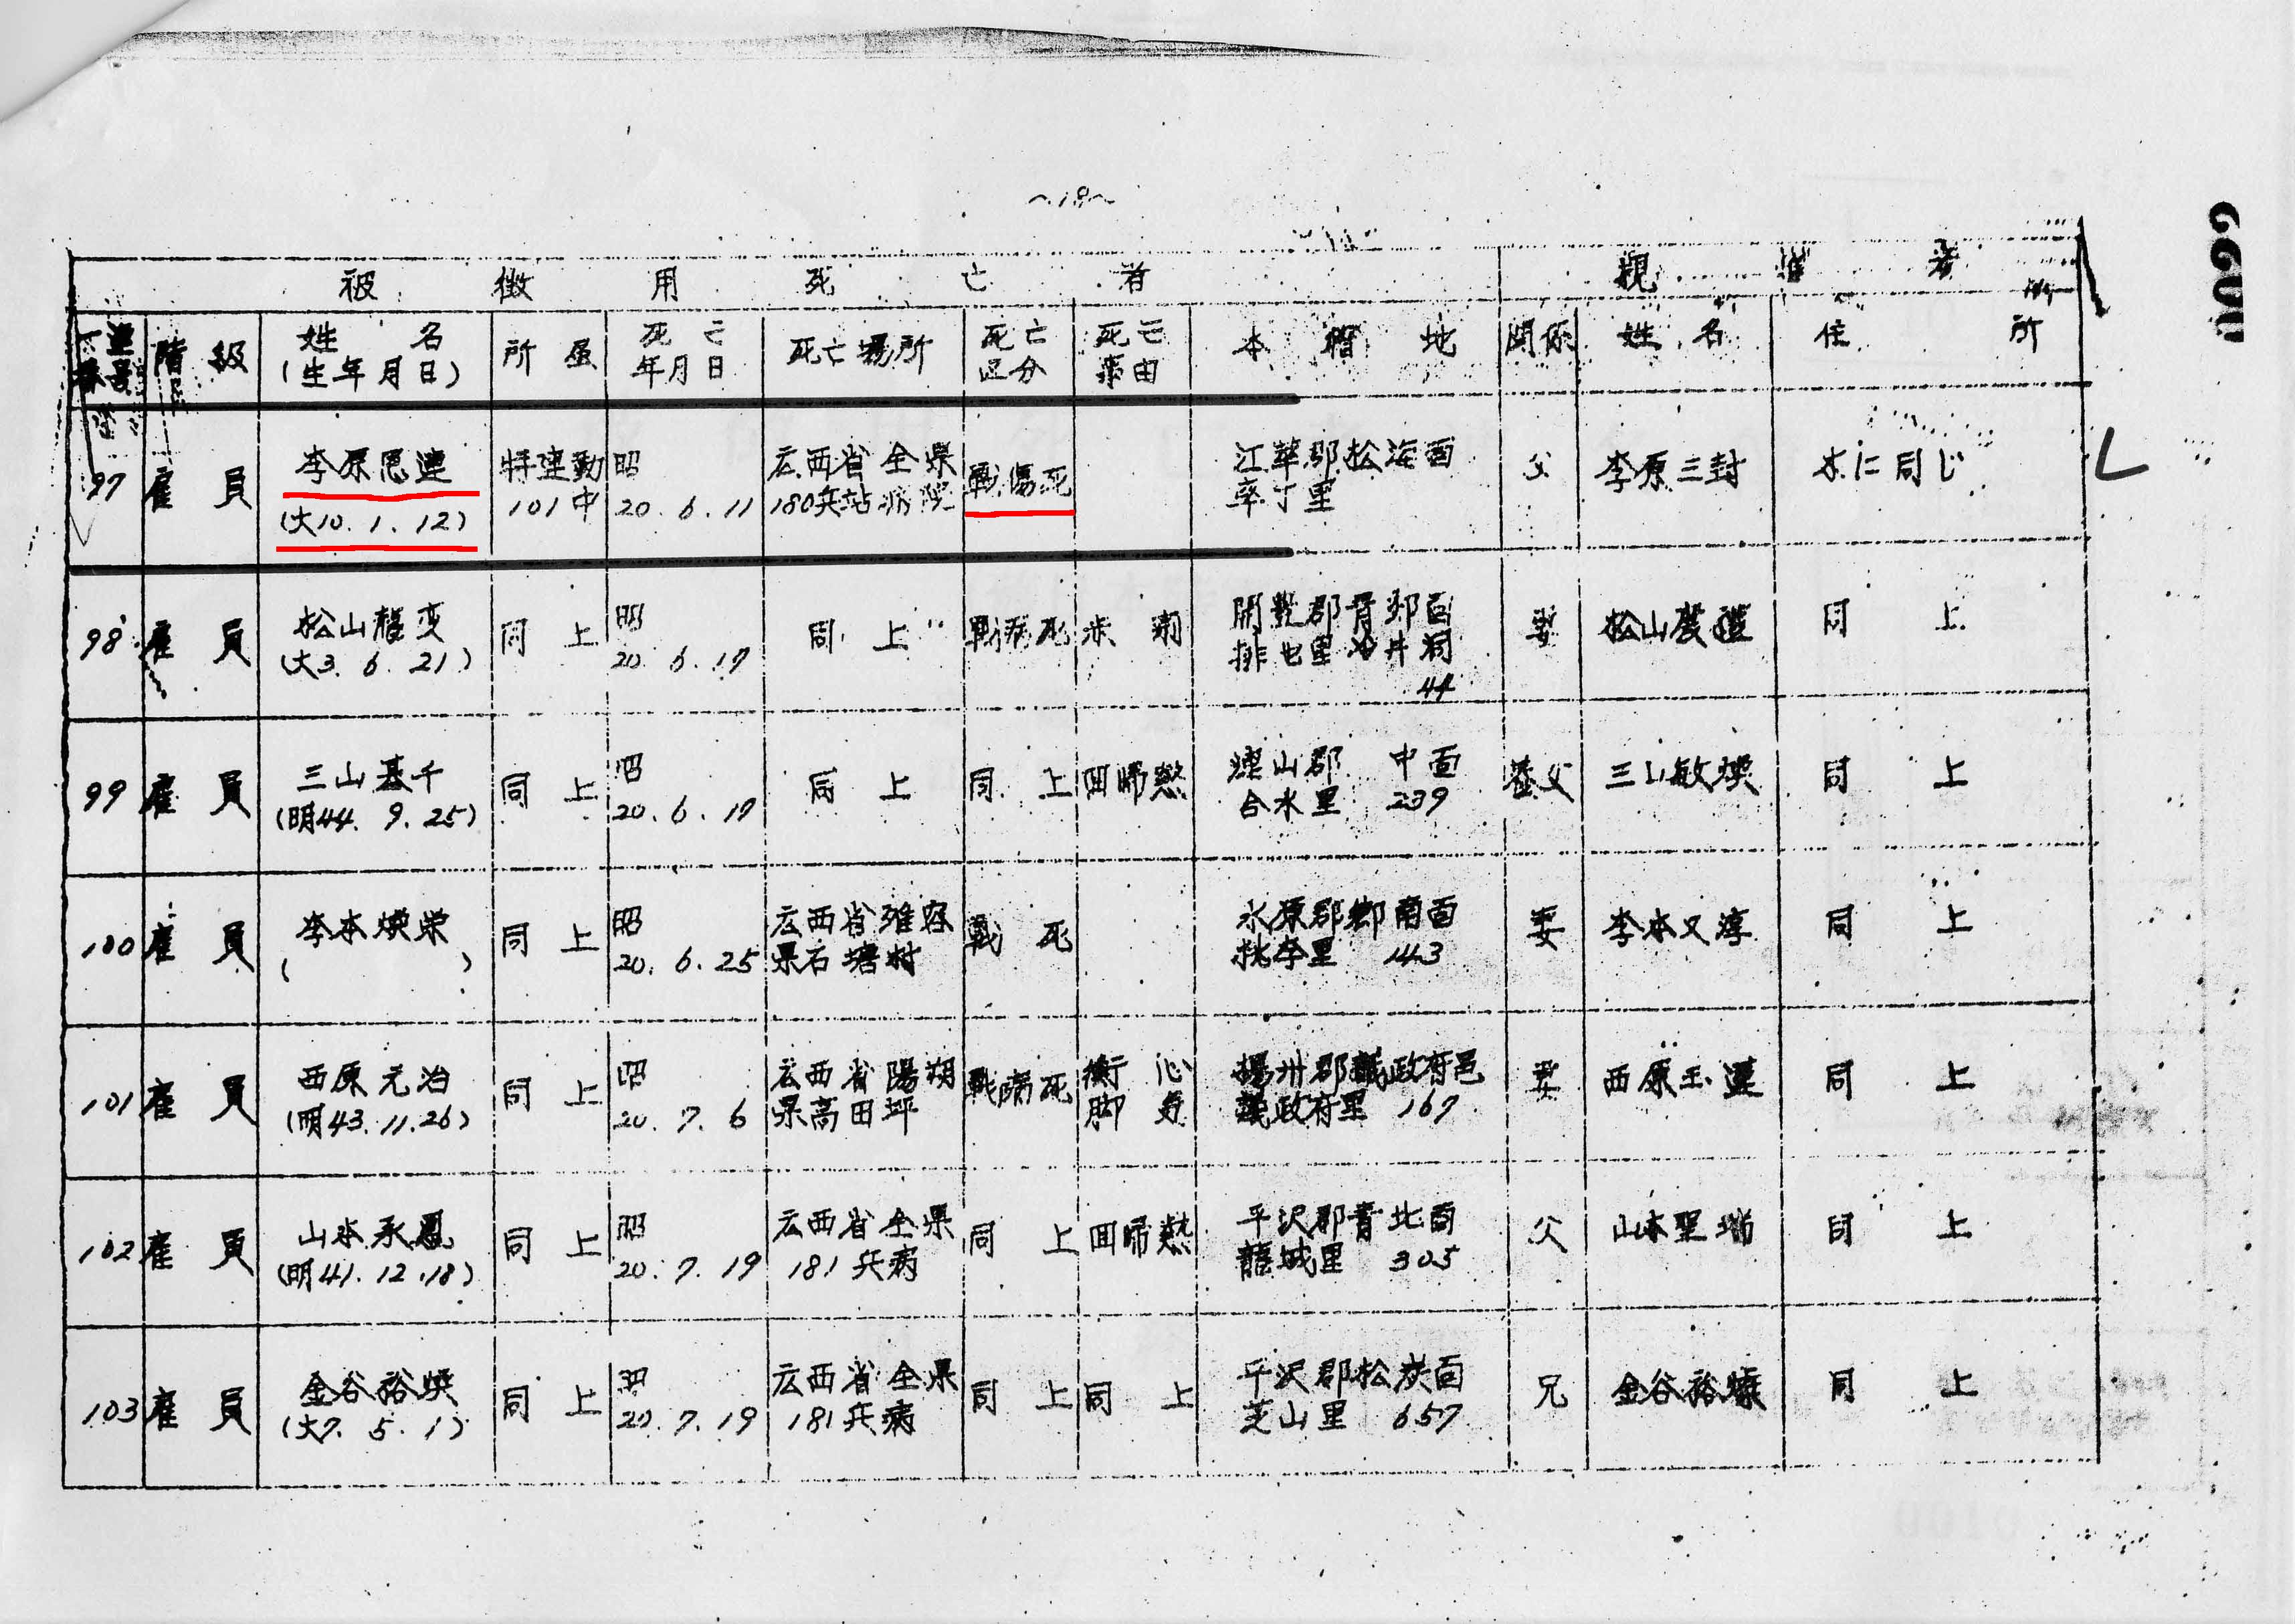 〜18〜
被徴用死亡者
親権者
一連番号
階級
姓名
(生年月日)
所属
死亡
年月日
死亡場所
死亡
区分
死亡
事由
本籍地
関係
姓名
住所
97
雇員
李原恩連
(大10.1.12)
特建勤
101中
昭
20.6.11
広西省全県
180兵站病院
戦傷死
江華郡松海面
率丁里
父
李原三封
本に同じ
98
雇員
松山
(大3.6.21)
同上
昭
20.6.17
同上
戦病死
赤痢
開豊郡青郊面
排也里 冷井洞
44
妻
松山
同上
99
雇員
三山基千
(明44.9.25)
同上
昭
20.6.17
同上
同上
回帰熱
漣山郡 中面
合水里 239
養父
三山敏煥
同上
100
雇員
李本煥栄
( )
同上
昭
20.6.25
広西省雒容
県石塘村
戦死
水原郡郷南面
桃李里 143
妻
李本又淳
同上
101
雇員
西原元治
(明43.11.26)
同上
昭
20.7.6
広西省陽朔
県高田坪
戦病死
衝心
脚気
揚州郡議政府邑
議政府里 167
妻
西原玉蓮
同上
102
雇員
山本承恩
(明41.12.18)
同上
昭
20.7.19
広西省全県
181兵病
同上
回帰熱
平沢郡青北面
龍城里 305
父
山本聖瑞
同上
103
雇員
金谷裕煥
(大7.5.1)
同上
昭
20.7.19
広西省全県
181兵病
同上
同上
平沢郡松炭面
芝山里 657
兄
金谷裕
同上